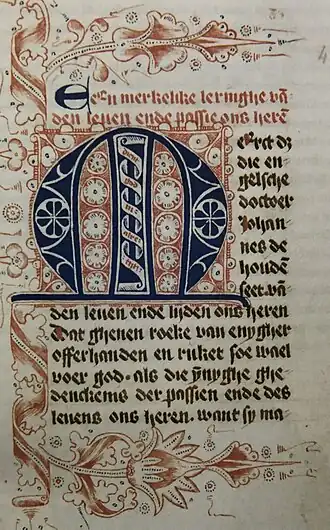 Een merkelike leringhe vā
den leuen ende passie ons herē
Merct dz
die en
gelsche
doctoer
Johan
nes de
houdē
seet. vā
den leuen ende lijden ons heren
Dat ghenen roeke van enygher
offerhanden en ruket soe wael
voer god. als die ỹnyghe ghe
denckenis der passien ende des
leuens ons heren. want sy ma